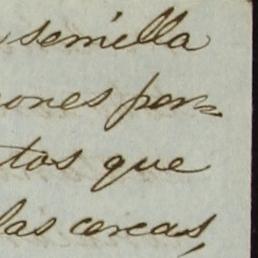 semilla
ones per-
tos que
las cercas,